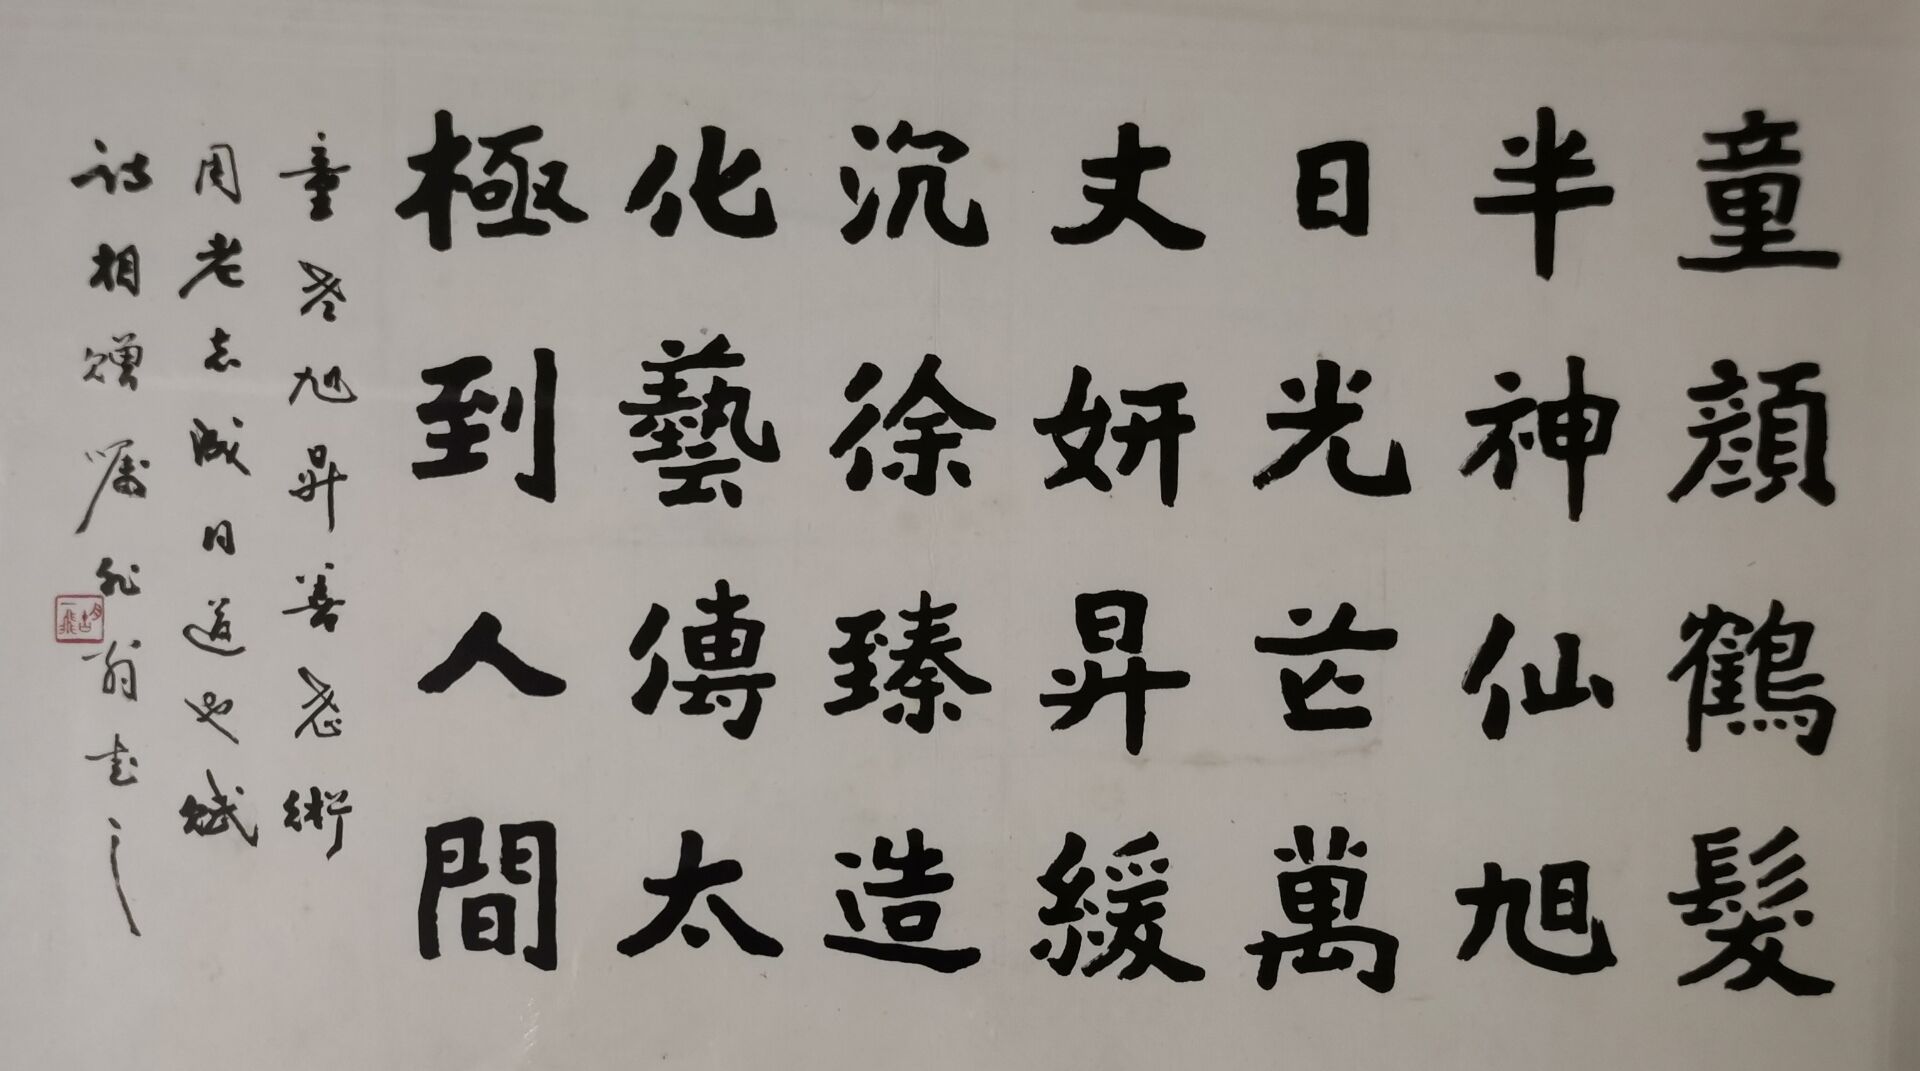 童顏鶴髮
半神仙旭
日光芒萬
丈妍昇緩
沉徐臻造
化藝傳太
極到人間
童老旭昇善老術
周老志成同道也賦
詩相贈屬 翁書之